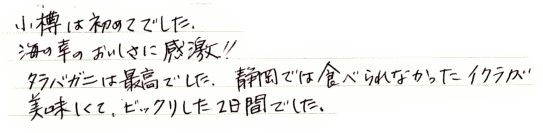 小樽は初めてでした.
海の幸のおいしさに感激!!
タラバガニは最高でした. 静岡では食べられなかったイクラが
美味しくて、ビックリした2日間でした。